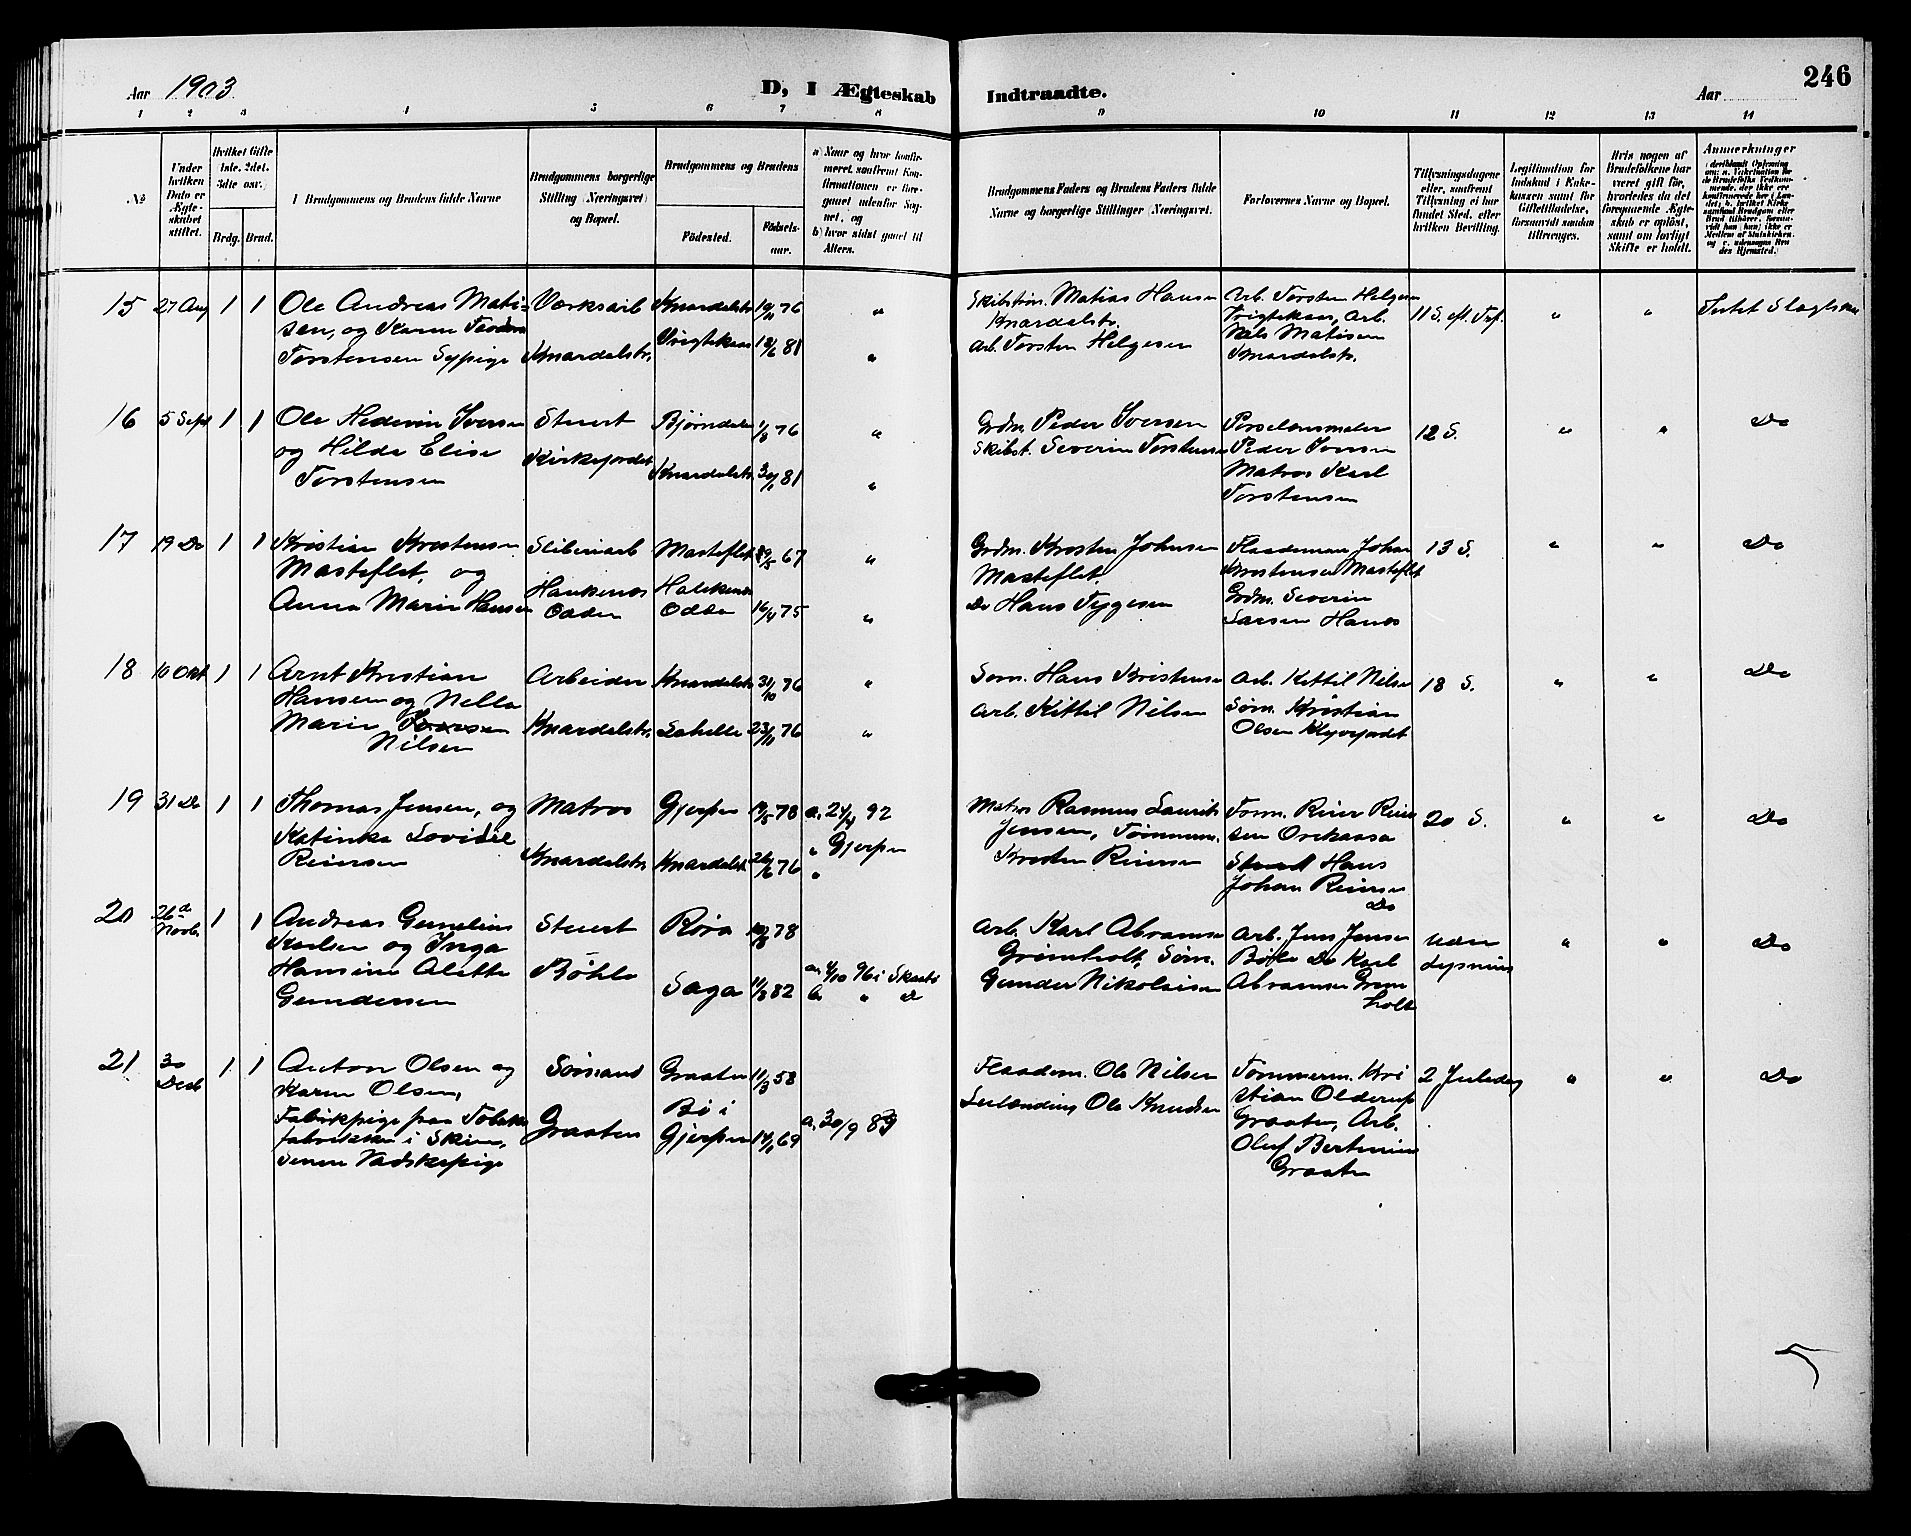 Aar 1903
D, I Ægteskab Indtraadte.
Aar
246
1 2 3 4 5 6 7 8 9 10 11 12 13 14
No
Under hvilken Dato er Ægteskabet stiftet.
Hvilket Gifte 1ste. 2det. 3die osv.)
Brdg. Brud.
Brudgommens og Brudens fulde Navne
Brudgommens borgerlige Stilling (Næringsvei) og Bopæl.
Brudgommens og Brudens
Fødested.
Fødselsaar.
a) Naar og hvor konfirmeret, saafremt Konfirmationen er foregaaet udenfor Sognet, og
b) hvor sidst gaaet til Alters.
Brudgommens Faders og Brudens Faders fulde Navne og borgerlige Stillinger (Næringsvei).
Forlovernes Navne og Bopæl.
Tillysningsdagene eller, saafremt Tillysning ei har fundet Sted, efter hvilken Bevilling.
Legitimation for Indskud i Enkekassen samt for Giftetilladelse, forsaavidt saadan tiltrænges.
Hvis nogen af Brudefolkene har været gift før, hvorledes da det foregaaende Ægteskab er opløst, samt om lovligt Skifte er holdt.
Anmærkninger
15 27 Aug 1 1 Ole Andreas Mati-
sen, og Karen
Torstensen Sypige
Værksarb
Knardalstr.
Knardalstr 19/11 76 "
Vrigtekaas 12/6 81 "
Skibstøm. Matias Hansen
Knardalstr.
Arb. Torsten Helgesen
Arb. Torsten Helgesen
Vrigtekaas, Arb.
Nels Matisen
Knardalstr.
11 S. eft. Trf. " " Intet Slagtskab
16 5 Sept 1 1 Ole Hedevin Iversen
og Hilda Elise
Torstensen
Stuert
Kirkejordet
Bjørndalen 1/8 76 "
Knardalstr. 30/1 81 "
Grdm. Peder Iversen
Skibst. Severin Torstensen
Porselænsmaler
Peder Iversen
Matros Karl
Torstensen
12 S. " " Do
17 19 Do 1 1 Kristian Kristensen
Masteflet, og
Anna Marie Hansen
Sliberiarb
Haukenes
Odden
Masteflet 29/5 67 "
Haukenes
Odde 16/4 75 "
Grdm. Kristen Johnsen
Masteflet.
Do Hans Tygesen
Flaademan Johan
Kristensen Masteflet
Grdm. Severin
Larsen Hanes
13 S. " " Do
18 10 Okt 1 1 Arnt Kristian
Hansen og Nella
Marie
Nilsen
Arbeider
Knardalstr.
Knardalstr 31/10 76 "
Lahelle 23/11 76 "
Søm. Hans Kristensen
Arb. Kittil Nilsen
Arb. Kittil Nilsen
Søm. Kristian
Olsen Klyvejordet
18 S. " " Do
19 31 Do 1 1 Thomas Jensen, og
Katinka Lovise
Reiersen
Matros
Knardalstr.
Gjerpen 19/5 78 a. 24/4 92
" Gjerpen
Knardalst 26/6 76 "
Matros Rasmus Laurits
Jensen, Tømmerm.
Kristen Reiersen
Tomm. Reier Reier
sen
Stuert Hans
Johan Reiersen
Do
20 S. " " Do
20 26de Novbr 1 1 Andreas Gemelius
Karlsen og Inga
Hansine Alette
Gundersen
Stuert
Bøhle
Røra 10/8 78
Saga 11/8 82 a. 4/10 96 i Skaatø
b. " Do
Arb. Karl Abramsen
Grimholt, Søm.
Gunder Nikolaisen
Arb. Jens Jensen
Bøle Do Karl
Abramsen Grim
holt
Uden
Lysning " " Do
21 30 Decb 1 1 Anton Olsen og
Karen Olsen,
Fabrikpige paa Tobaks
fabrikken i Skien,
Senere Vadskepige
Sømand
Graaten
Graaten 11/3 58
Bø i
Gjerpen 14/1 69 a. 30/9 83
Flaadem. Ole Nilsen
Leilænding Ole Knudsen
Tømmerm. Kri
stian Olderup
Graaten, Arb.
Oluf Bertinius
Graaten
2 Juledag " " Do